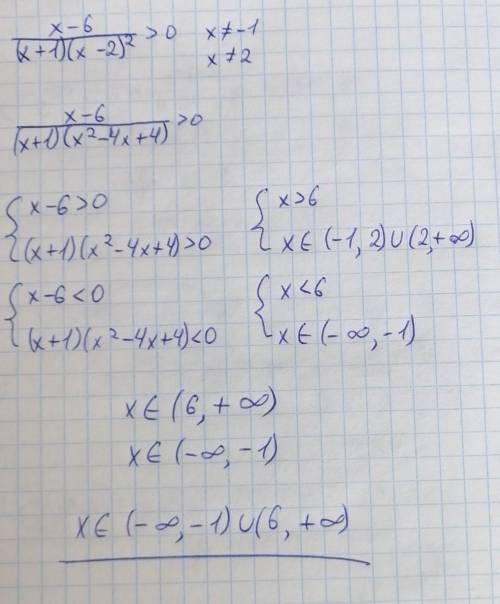 (x-6)/((x+1)(x-2)²) > 0   x ≠ -1
x ≠ 2
(x-6)/((x+1)(x²-4x+4)) > 0
{ x-6>0   { x>6
(x+1)(x²-4x+4)>0   x∈(-1,2)∪(2,+∞)
{ x-6<0   { x<6
(x+1)(x²-4x+4)<0   x∈(-∞,-1)
x∈(6,+∞)
x∈(-∞,-1)
x∈(-∞,-1)∪(6,+∞)